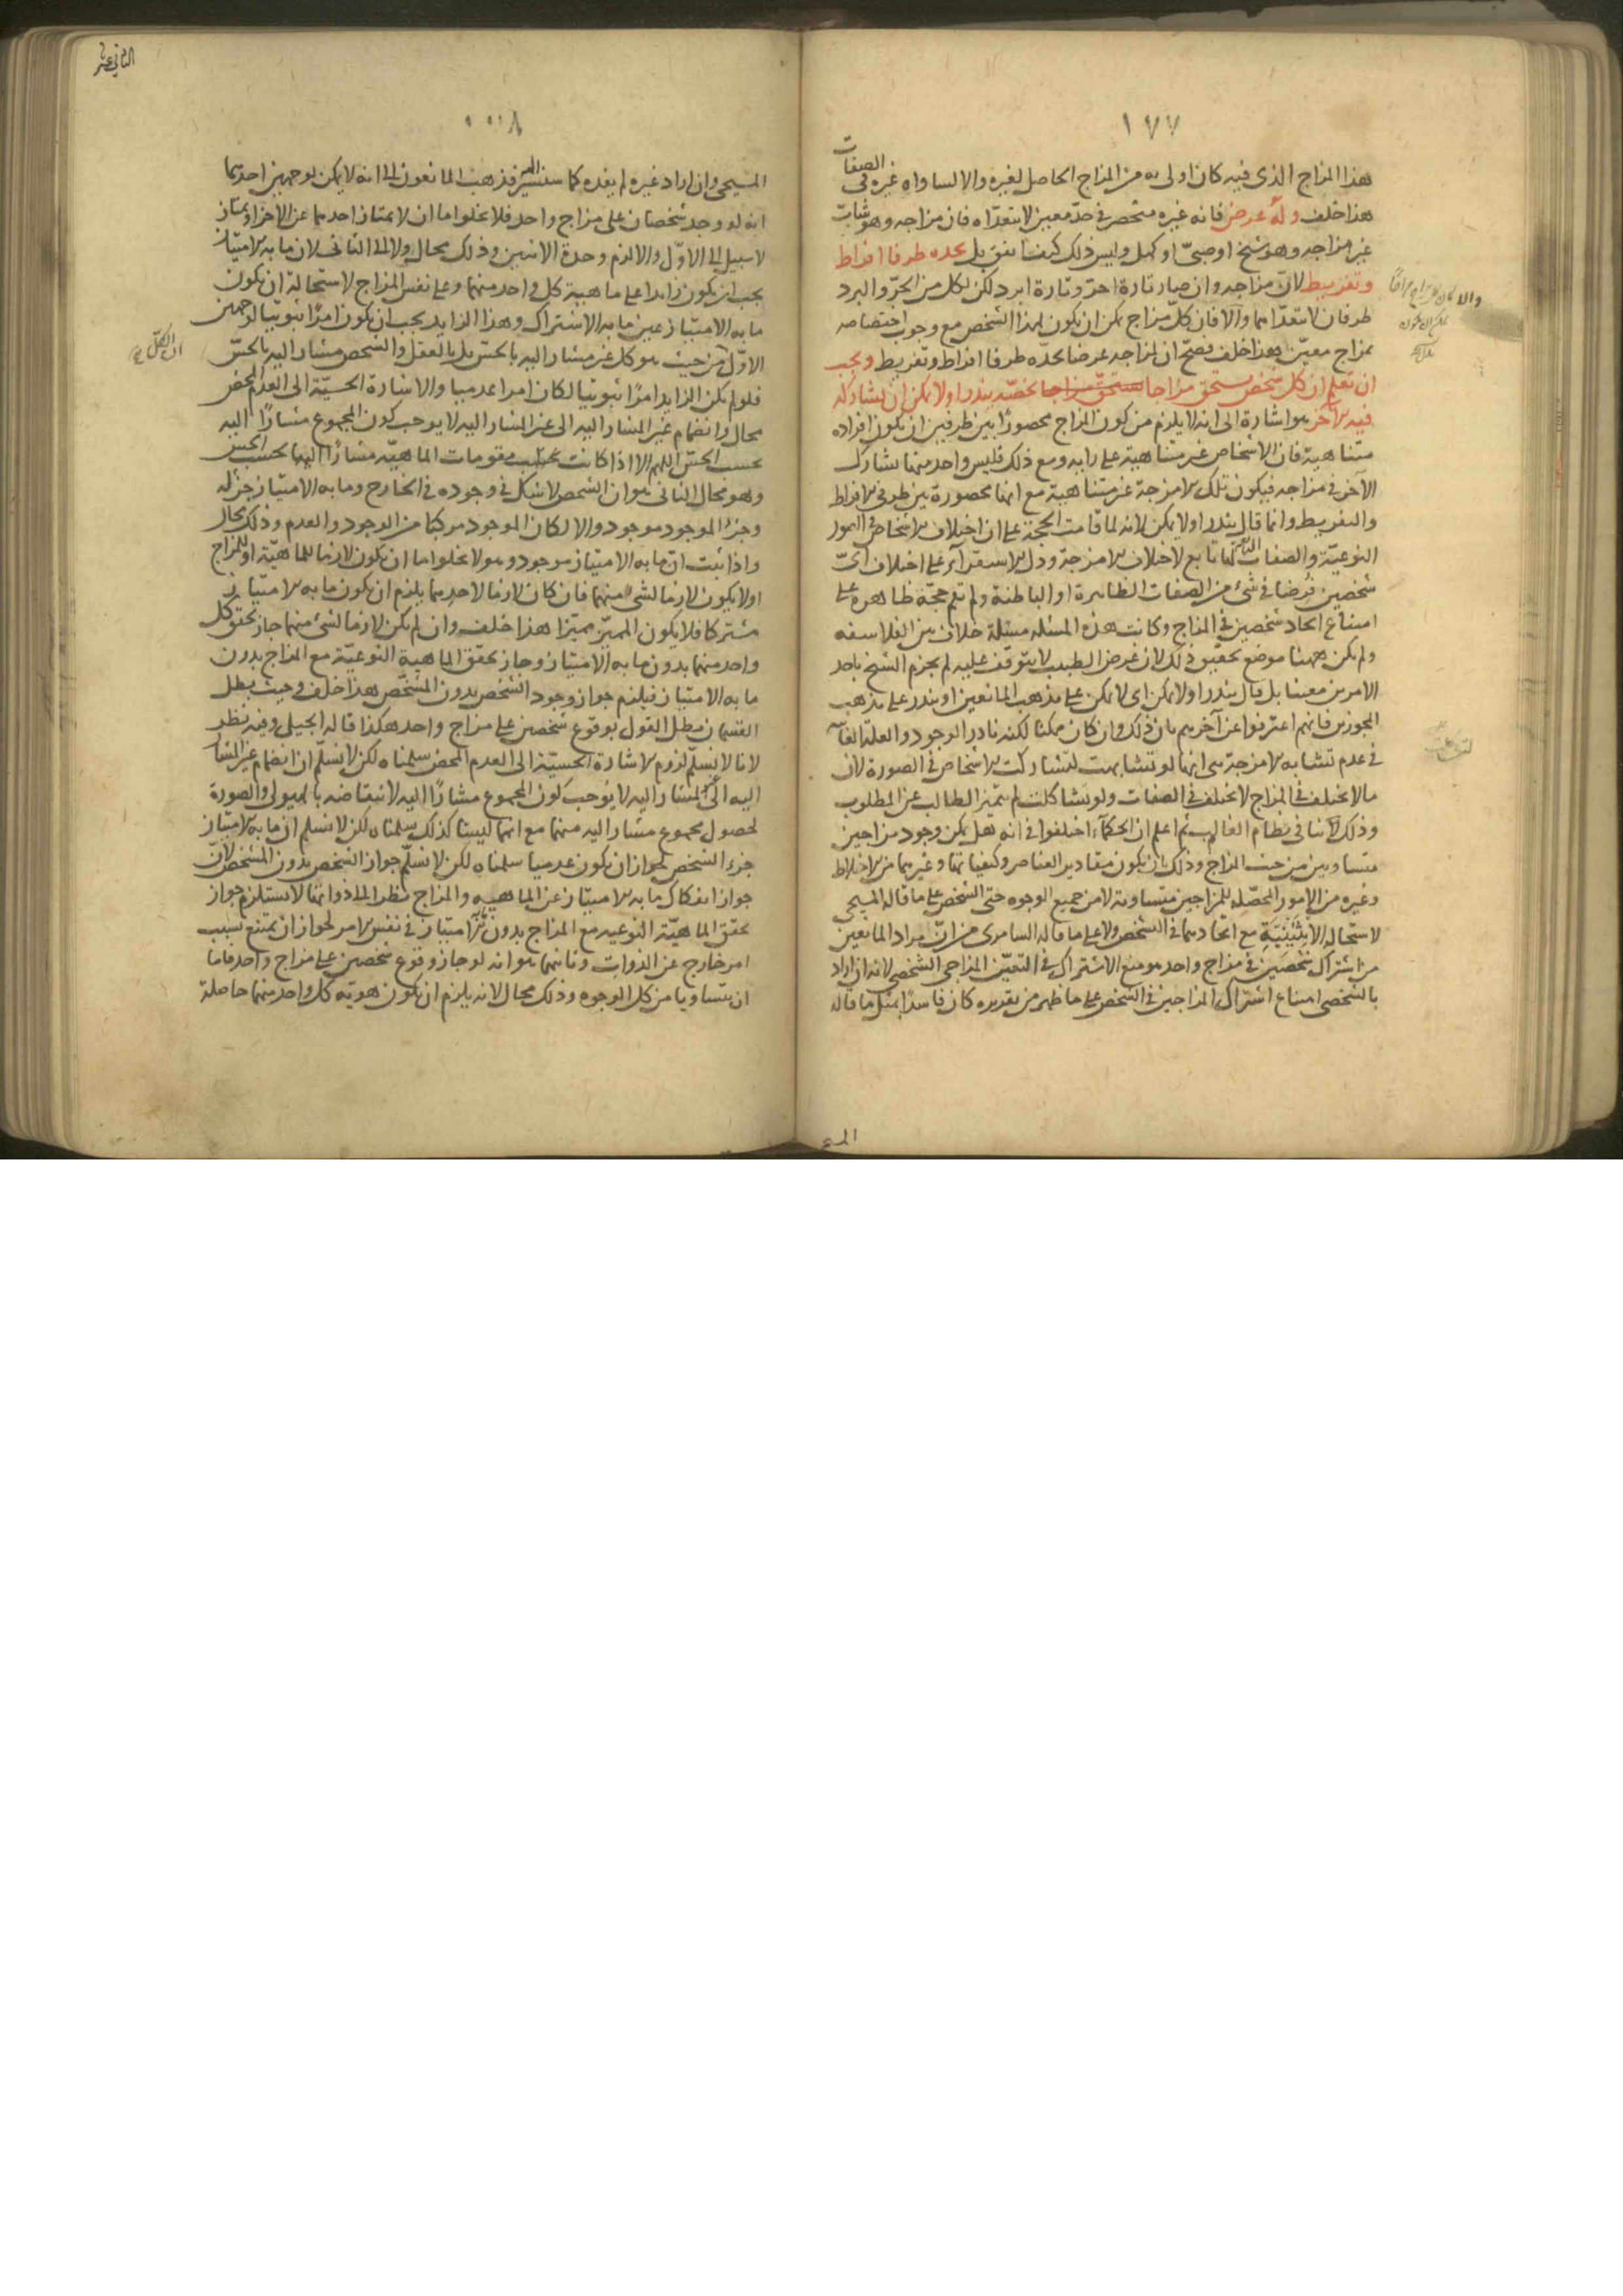 ١٧٧
هذا المزاج الذى فيه كان اولى به من المزاج الحاصل لغيره والا لساواه غيره فى الصفات
هذا خلف وله عرض فانه غير منحصر فى حد معين لا يتعداه فان مزاجه وهو شاب
غير مزاجه وهو شيخ او صبى او كهل وليس ذلك كيف اتفق بل يحده طرفا افراط
وتفريط لان مزاجه وان صار تارة احر وتارة ابرد لكن لكل من الحر والبرد
طرفان لا يتعداهما والا فان كل مزاج يمكن ان يكون لهذا الشخص مع وجوب اختصاصه
بمزاج معين هذا خلف فصح ان لمزاجه عرضا يحده طرفا افراط وتفريط ويجب
ان تعلم ان كل شخص يستحق مزاجا يخصه يندر او لا يمكن ان يشاركه
فيه الآخر هو اشارة الى انه لا يلزم من كون المزاج محصورا بين طرفين ان يكون افراده
متناهية فان الاشخاص غير متناهية على رايه ومع ذلك فليس واحد منها يشارك
الآخر فى مزاجه فيكون تلك الامزجة غير متناهية مع انها محصورة بين طرفى الافراط
والتفريط وانما قال يندر او لا يمكن لانه لما قامت الحجة على ان اختلاف الاشخاص فى الصور
النوعية والصفات التابعة لها تابع لاختلاف الامزجة ودل الاستقراء على اختلاف اى
شخصين فرضا فى شئ من الصفات الظاهرة او الباطنة ولم تقم حجة ظاهرة على
امتناع اتحاد شخصين فى المزاج وكانت هذه المسئلة مسئلة خلاف بين الفلاسفه
ولم يكن ههنا موضع تحقيق ذلك لان غرض الطبيب لا يتوقف عليه لم يجزم الشيخ باحد
الامرين معينا بل قال يندر او لا يمكن اى لا يمكن على مذهب المانعين او يندر على مذهب
المجوزين فانهم اعترفوا عن آخرهم بان ذلك وان كان ممكنا لكنه نادر الوجود والعلة الغائية
فى عدم تشابه الامزجة هى انها لو تشابهت لتشاركت الاشخاص فى الصورة لان
ما لا يختلف فى المزاج لا يختلف فى الصفات ولو تشاكلت لم يتميز الطالب عن المطلوب
وذلك لا ينافى نظام العالم ثم اعلم ان الحكماء اختلفوا فى انه هل يمكن وجود مزاجين
متساويين من حيث المزاج وذلك بان يكون مقادير العناصر وكيفياتها وغيرهما من الاخلاط
وغيره من الامور المحصلة للمزاجين متساوية لا من جميع الوجوه حتى الشخص على ما قاله المسيحى
لاستحالة الاثنينية مع اتحادهما فى الشخص ولا على ما قاله السامرى من ان مراد المانعين
من اشتراك شخصين فى مزاج واحد هو منع الاشتراك فى التعين المزاجى الشخصى لانه ان اراد
بالشخصى امتناع اشتراك المزاجين فى الشخص على ما ظهر من تقريره كان فاسدا بمثل ما قاله
المسيحى وان اراد غيره لم يفده كما سنشير اليه فذهب المانعون الى انه لا يمكن لوجهين احدهما
انه لو وجد شخصان على مزاج واحد فلا يخلوا ما ان لا يمتاز احدهما عن الآخر او يمتاز
لا سبيل الى الاول والا لزم وحدة الاثنين وذلك محال ولا الى الثانى لان ما به الامتياز
يجب ان يكون زائدا على ماهية كل واحد منهما وعلى نفس المزاج لاستحالة ان يكون
ما به الامتياز عين ما به الاشتراك وهذا الزايد يجب ان يكون امرا ثبوتيا لوجهين
الاول من حيث هو كل غير مشار اليه بالحس بل بالعقل والشخص مشار اليه بالحس
فلو لم يكن الزايد امرا ثبوتيا لكان امرا عدميا والاشارة الحسية الى العدم المحض
محال وانضمام غير المشار اليه الى غير المشار اليه لا يوجب كون المجموع مشارا اليه
بحسب الحس اللهم الا اذا كانت مقومات الماهية مشارا اليها بحسب الحس
وهو محال الثانى هو ان الشخص لا شك فى وجوده فى الخارج وما به الامتياز جزء له
وجزء الموجود موجود والا لكان الموجود مركبا من الوجود والعدم وذلك محال
واذا ثبت ان ما به الامتياز موجود وهو لا يخلوا ما ان يكون لازما للماهية او للمزاج
او لا يكون لازما لشئ منهما فان كان لازما لاحدهما يلزم ان يكون ما به الامتياز
مشتركا فلا يكون المميز مميزا هذا خلف وان لم يكن لازما لشئ منهما جاز تحقق كل
واحد منهما بدون ما به الامتياز وجاز تحقق الماهية النوعية مع المزاج بدون
ما به الامتياز فيلزم جواز وجود الشخص بدون المشخص هذا خلف وحيث بطل
القسمان بطل القول بوقوع شخصين على مزاج واحد هكذا قاله الجيلى وفيه نظر
لانا لا نسلم لزوم الاشارة الحسية الى العدم المحض سلمناه لكن لا نسلم ان انضمام غير المشار
اليه الى المشار اليه لا يوجب كون المجموع مشارا اليه لانتقاضه بالهيولى والصورة
لحصول مجموع مشار اليه منهما مع انهما ليستا كذلك سلمناه لكن لا نسلم ان ما به الامتياز
جزء الشخص لجواز ان يكون عدميا سلمناه لكن لا نسلم جواز الشخص بدون المشخص لان
جواز انفكاك ما به الامتياز عن الماهية والمزاج نظرا الى ذواتها لا يستلزم جواز
تحقق الماهية النوعيه مع المزاج بدون ما به الامتياز فى نفس الامر لجواز ان يمتنع بسبب
امر خارج عن الذوات وثانيهما هو انه لو جاز وقوع شخصين على مزاج واحد فاما
ان يتساويا من كل الوجوه وذلك محال لانه يلزم ان يكون هوية كل واحد منهما حاصلة